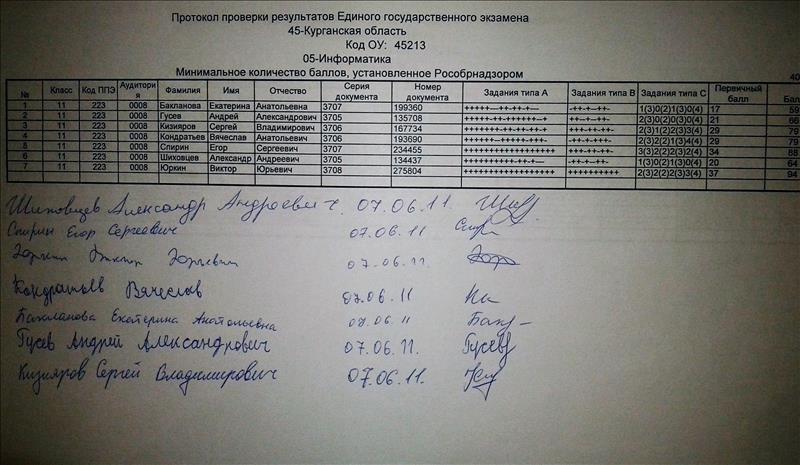 Протокол проверки результатов Единого государственного экзамена
45-Курганская область
Код ОУ: 45213
05-Информатика
Минимальное количество баллов, установленное Рособрнадзором 40
№ Класс Код ППЭ Аудитория Фамилия Имя Отчество Серия документа Номер документа Задания типа А Задания типа В Задания типа С Первичный балл Бал
1 11 223 0008 Бакланова Екатерина Анатольевна 3707 199360 1(3)0(2)1(3)0(4) 17 59
2 11 223 0008 Гусев Андрей Александрович 3705 135708 2(3)0(2)0(3)0(4) 21 66
3 11 223 0008 Кизияров Сергей Владимирович 3706 167734 2(3)1(2)2(3)3(4) 29 79
4 11 223 0008 Кондратьев Вячеслав Анатольевич 3706 193690 2(3)2(2)1(3)3(4) 29 79
5 11 223 0008 Спирин Егор Сергеевич 3707 234455 3(3)2(2)2(3)2(4) 34 88
6 11 223 0008 Шиховцев Александр Андреевич 3705 134437 1(3)0(2)1(3)0(4) 20 64
7 11 223 0008 Юркин Виктор Юрьевич 3708 275804 2(3)2(2)3(3)4(4) 37 94
Шиховцев Александр Андреевич. 07.06.11.
Спирин Егор Сергеевич 07.06.11
Юркин Виктор Юрьевич 07.06.11.
Кондратьев Вячеслав 07.06.11
Бакланова Екатерина Анатольевна 07.06.11
Гусев Андрей Александрович 07.06.11. Гусев
Кизияров Сергей Владимирович 07.06.11.